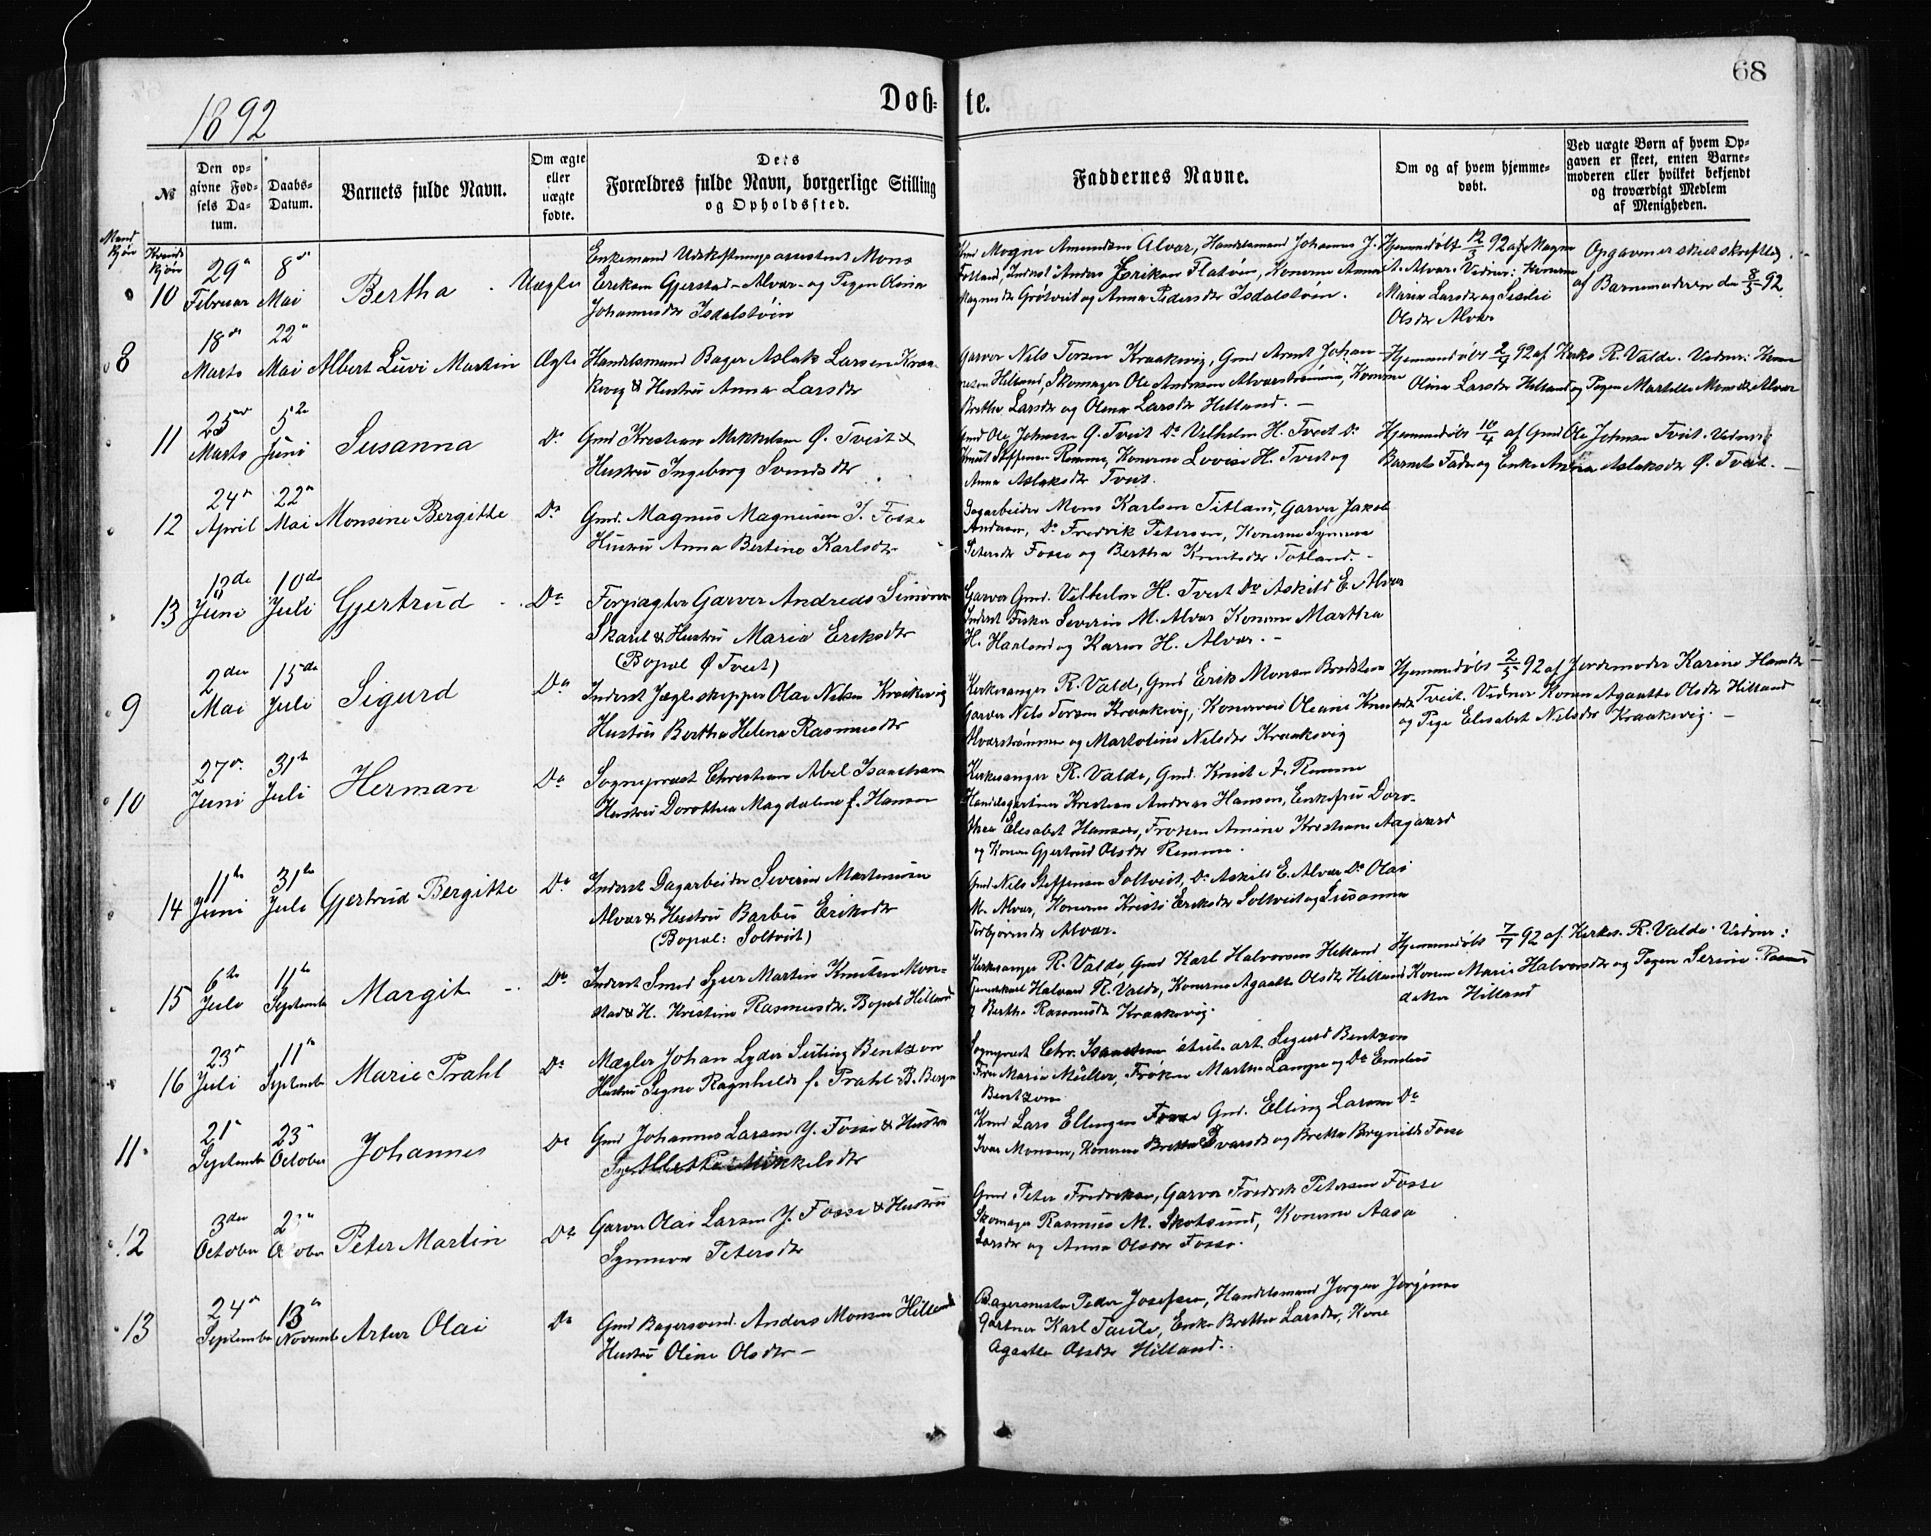 68
1892
Døb- te.
№
Den opgivne Fødsels Datum.
Daabs-Datum.
Barnets fulde Navn.
Om ægte eller uægte fødte.
Dets Forældres fulde Navn, borgerlige Stilling og Opholdssted.
Faddernes Navne.
Om og af hvem hjemmedøbt.
Ved uægte Børn af hvem Opgaven er skeet, enten Barnemoderen eller hvilket bekjendt og troværdigt Medlem af Menigheden.
Mand kjøn
Kvinde kjøn
10 29 Februar 8 Mai Bertha Uægte
Enkemand Udskiftningsassistent Mons
Eriksen Gjerstad - Alvær - og Pigen Olina
Johannesdtr Isdalstøen
Amundsen Alvær, Handelsmand Johannes J.
Anders Eriksen Flatøen, Konerne Anna
Magnesdtr Grøtveit og Anna Pedersdtr Isdalstøen.
Hjemmedøbt 12/3 92 af Magne
A. Alvær. Vidner: Konerne
Maria Larsdtr og
Olsdtr Alvær
Opgaven er skeet skriftlig
af Barnemoderen den 8/5 92.
8 18 Marts 22 Mai Albert Luvi Martin Ægte
Handelsmand Bager Aslak Larsen Kraa-
kevig & Hustru Anna Larsdtr
Garver Nils Torsen Kraakevig, Gmd Arent Johan-
nesen Hilland, Skomager Ole Andersen Alverstrømmen, Konerne
Brethe Larsdtr og Olina Larsdtr Hilland. -
Hjemmedøbt 2/4 92 af Kirkes. R. Valde. Vidner: Konen
Olina Larsdtr Hilland og Pigen Marthe Monsdtr Alvær
11 25 Marts 5te Juni Susanna Do
Gmd Kristian Mikkelsen Ø. Tveit &
Hustru Ingeborg Svendsdtr
Gmd Ole Johnsen Ø. Tveit Do Vilhelm H. Tveit Do
Knut Steffensen Remme, Konerne Lovise H. Tveit og
Anna Aslaksdtr Tveit.
Hjemmedøbt 10/4 af Gmd Ole Johnsen Tveit. Vidner:
Barnets Fader og Enke Anna Aslaksdtr Ø. Tveit. -
12 24 April 22 Mai Monsine Bergitte Do
Gmd. Magnus Magnusen Y. Fosse
Hustru Anna Bertine Karlsdtr
Dagarbeider Mons Karlsen Titland, Garver Jakob
Andersen, Do Fredrik Petersen, Konerne Synneva
Petersdtr Fosse og Bertha Knutsdtr Totland. -
13 12de Juni 10de Juli Gjertrud Do
Forpagter Garver Andreas Simonsen
Skaret & Hustru Maria Eriksdtr
(Bopæl Ø Tveit)
Garver Gmd. Vilhelm H. Tveit Do Askild E. Alvær
Inderst Fisker Severin M. Alvær Konerne Martha
H. Harland og Karen H. Alvær. -
9 2den Mai 15de Juli Sigurd Do
Inderst Jægteskipper Olai Nilsen Kraakevig
Hustru Bertha Helena Rasmusdtr
Kirkesanger R. Valde, Gmd Erik Monsen Bredsteen
Garver Nils Torsen Kraakevig, Konerne Oleane Knutsdtr
Alverstrømmen og Martoline Nilsdtr Kraakevig
Hjemmedøbt 2/5 92 af Jordemoder Karine Hansdtr
Tveit. Vidner Konen Agaathe Olsdtr Hilland
og Pige Elisabet Nilsdtr Kraakevig. -
10 27 Juni 31te Juli Herman Do
Sognepræst Christian Abel Isaachsen
Hustru Dorothea Magdalene f. Hansen
Kirkesanger R. Valde, Gmd. Knut A. Remme
Handelsgartner Kristian Andreas Hansen, Enkefru Doro-
thea Elisabet Hansen, Frøken Amine Kristiane Aagaard
og Konen Gjertrud Olsdtr Remme.
14 11te Juni 31te Juli Gjertrud Bergitte Do
Inderst Dagarbeider Severin Martinusen
Alvær & Hustru Barbu Eriksdtr
(Bopæl: Soltveit)
Gmd Nils Steffensen Soltveit, Do Askild E. Alvær Do Olai
M. Alvær, Konerne Kristi Eriksdtr Soltveit og Susanna
Torbjørnsdtr Alvær.
15 6te Juli 11te September Margit Do
Inderst Smed Sjur Martin Knutsen Mor-
stad & H. Kristine Rasmusdtr. Bopæl Hilland
Kirkesanger R. Valde, Gmd Karl Halvorsen Hilland
Halvard R. Valde, Konerne Agaathe Olsdtr Hilland
& Berthe Rasmusdtr Kraakevig.
Hjemmedøbt 7/7 92 af Kirkes. R. Valde. Vidner:
Konen Marie Halvorsdtr og Pigen Serine Rasmus-
datter Hilland
16 23 Juli 11te September Marie Prahl Do
Mægler Johan Lyder Suling Bentzon
Hustru Signe Ragnhilde f. Prahl B. Bergen
Sognepræst Chr. Isaachsen stud. art. Sigurd Bentzon
Fru Maria Müller, Frøken Marthe Lampe og Do
Bentzon
11 21 September 23 October Johannes Do
Gmd Johannes Larsen Y. Fosse & Hustru
Mikkelsdtr
Kmd Lars Ellingsen Fosse Gmd. Elling Larsen Do
Ivar Monsen, Konerne Brethe Ivarsdtr og Brethe Brynilds Fosse
12 3den October 2 October Peter Martin Do
Garver Olai Larsen Y. Fosse & Hustru
Synneva Petersdtr
Gmd Peter Fredriksen, Garver Fredrik Petersen Fosse
Skomager Rasmus M. Skotsund, Konerne Aasa
Larsdtr og Anna Olsdtr Fosse.
13 24 September 13 November Artur Olai Do
Gmd Bagersvend. Anders Monsen Hilland
Hustru Oline Olsdtr -
Bagermester Peder Josefsen, Handelsmand Jørgen Jørgensen
Gartner Karl Taule, Enke Brethe Larsdtr, Kone
Agaathe Olsdtr Hilland.